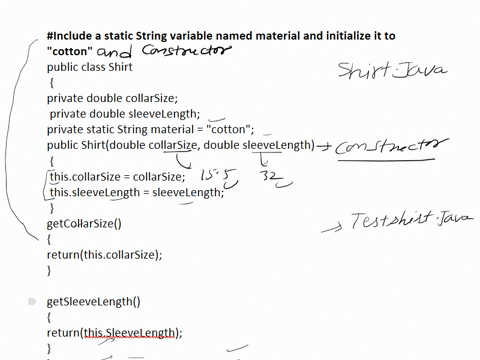 #Include a static String variable named material and initialize it to
"cotton" and Constructor
public class Shirt
Shirt.Java
{
private double collarSize;
private double sleeveLength;
private static String material = "cotton";
public Shirt(double collarSize, double sleeveLength) → Constructor
{
this.collarSize = collarSize; 15.5 32
this.sleeveLength = sleeveLength;
}
getCollarSize()
→ Testshirt.Java
{
return(this.collarSize);
}
getSleeveLength()
{
return(this.SleeveLength);
}